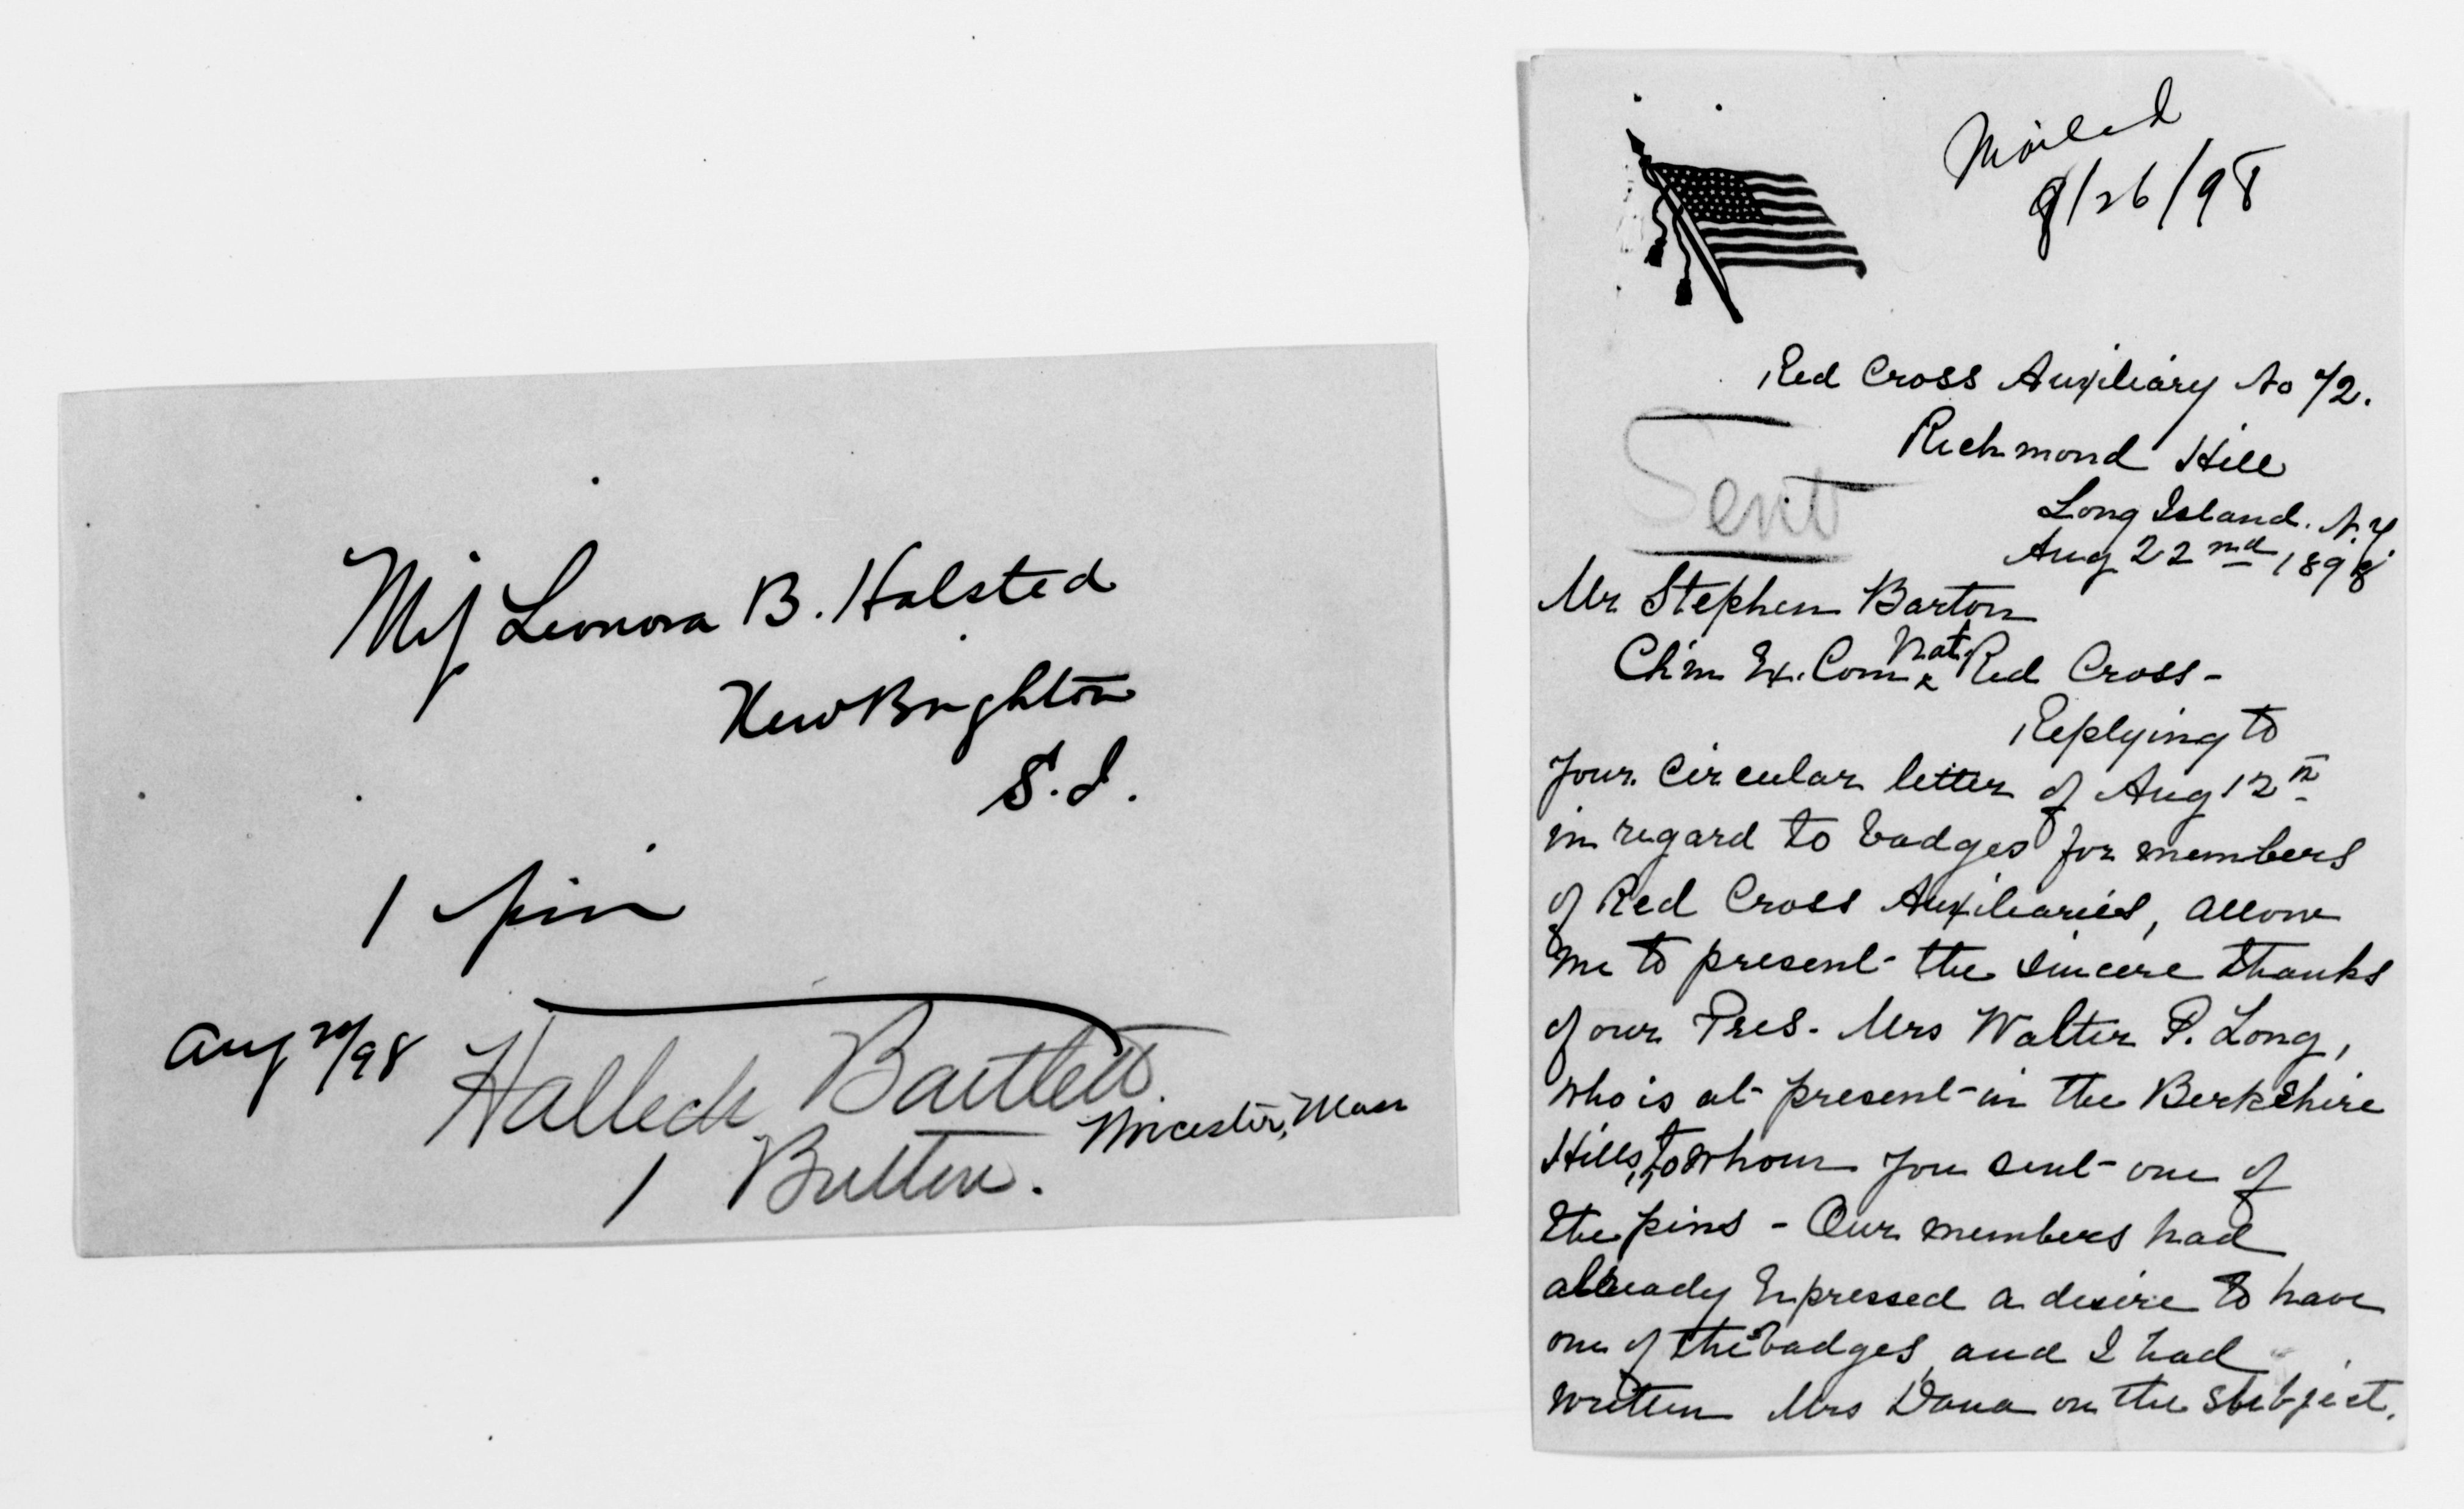 Miss Leonora B. Halsted
New Brighton
S.I.
1 pin
Aug 20/98
Halleck Bartlett
Worcester, Mass
1 Button.
Mailed
8/26/98
Red Cross Auxiliary No 72.
Sent
Richmond Hill
Long Island. N.Y
Aug 22nd 1898
Mr Stephen Barton
Ch'm Ex. Com Nat. Red Cross-
Replying to
your circular letter of Aug 12th
in regard to badges for members
of Red Cross Auxiliaries, allow
me to present the sincere thanks
of our Pres. Mrs Walter P. Long,
who is at present in the Berkshire
Hills, to whom you sent one of
the pins - Our members had
already expressed a desire to have
one of the badges, and I had
written Mrs Dana on the subject.